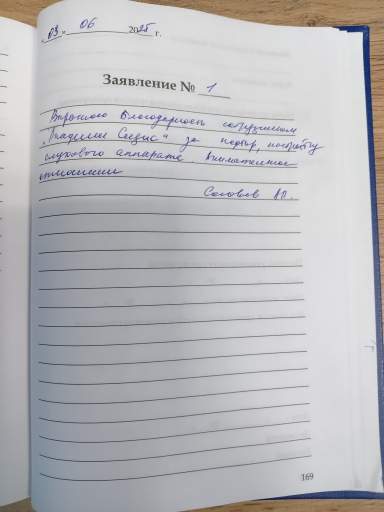 „03" 06 2025 г.
Заявление № 1
Выражаю Благодарность сотрудникам
"Академии Слуха" за подбор, настройку
слухового аппарата внимательное
отношение
Соловьев
169